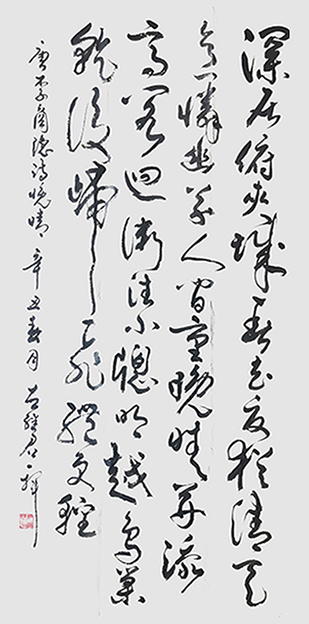 深居俯夾城春去夏猶清天
意憐幽草人間重晚晴並添
高閣迥微注小牕明越鳥巢
乾後歸飛體更輕
唐李商隱詩晚晴 辛丑春月